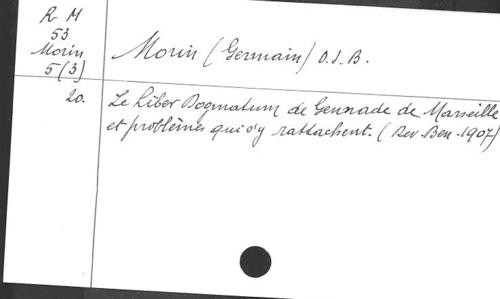 R M
53
Morin
5(3)
Morin (Germain) O.S.B.
20.
Le Liber Dogmatum de Gennade de Marseille
et problèmes qui s'y rattachent. (Rev. Ben. 1907)